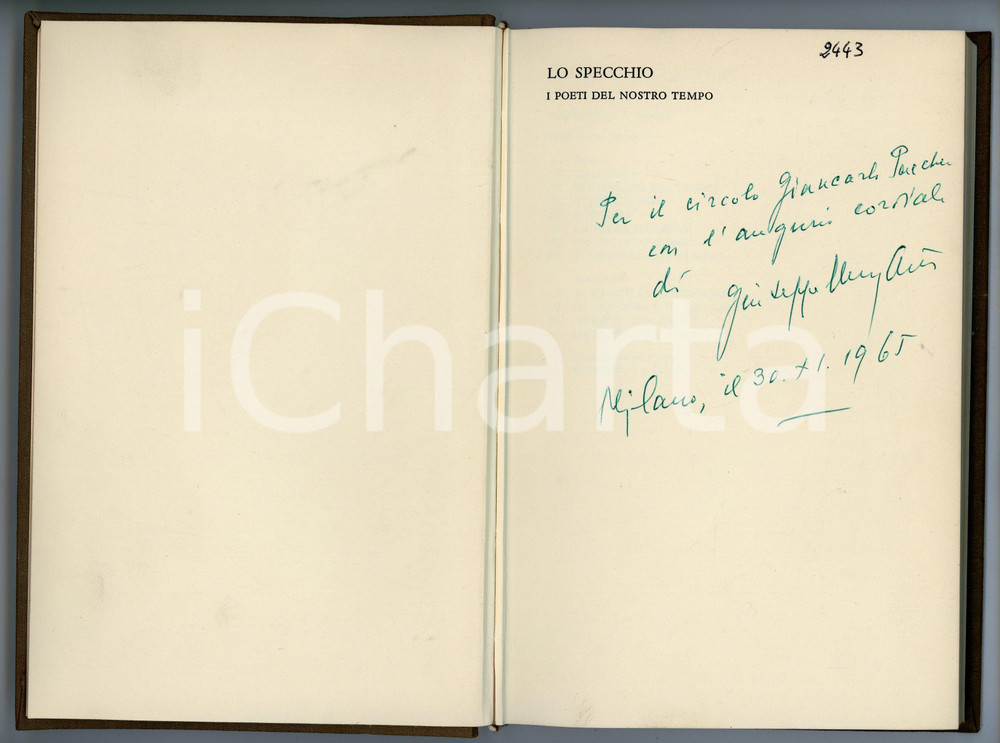 2443
LO SPECCHIO
I POETI DEL NOSTRO TEMPO
Per il circolo Giancarlo Puecher
con l'augurio cordiale
di Giuseppe Ungaretti
Milano, il 30. XI. 1965
iCharta